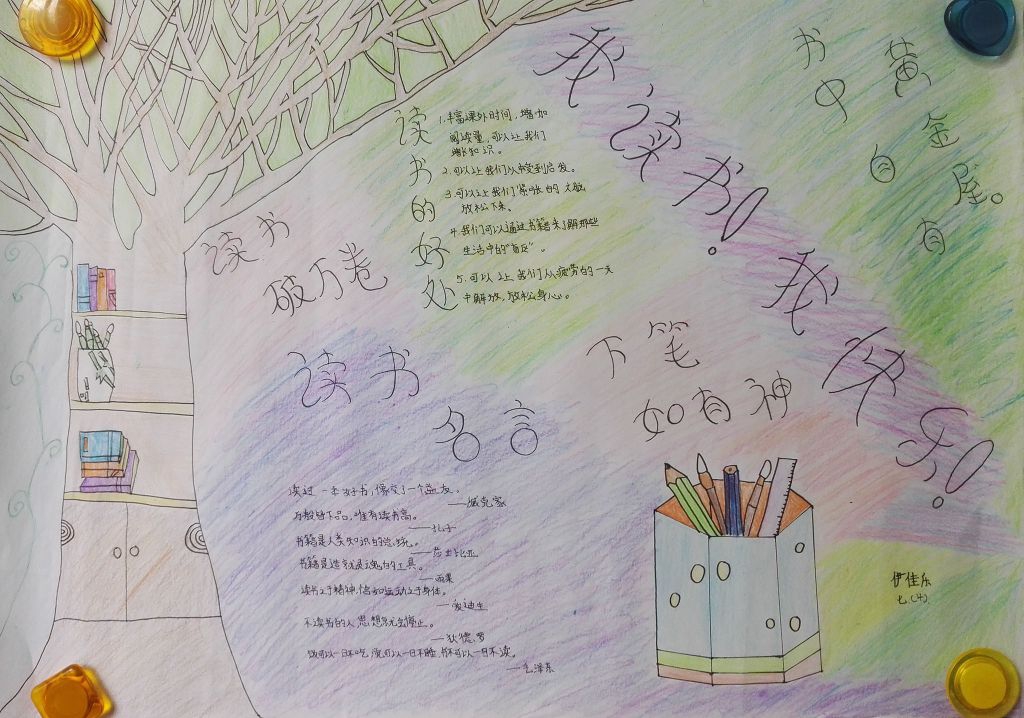 我读书!
我快乐!
书中自
有黄金屋。
读书
破万卷
下笔
如有神
读书的好处
1.丰富课外时间,增加
阅读量,可以让我们
增长知识。
2.可以让我们从中受到启发。
3.可以让我们紧张的大脑
放松下来。
4.我们可以通过书籍来了解那些
生活中的"盲区"。
5.可以让我们从疲劳的一天
中解放,放松身心。
读书
名言
读过一本好书,像交了一个益友。
——臧克家
万般皆下品,唯有读书高。
——孔子
书籍是人类知识的总统。
——莎士比亚
书籍是造就灵魂的工具。
——雨果
读书之于精神,恰如运动之于身体。
——爱迪生
不读书的人,思想就会停止。
——狄德罗
饭可以一日不吃,觉可以一日不睡,书不可以一日不读。
——毛泽东
伊佳乐
七.(4)